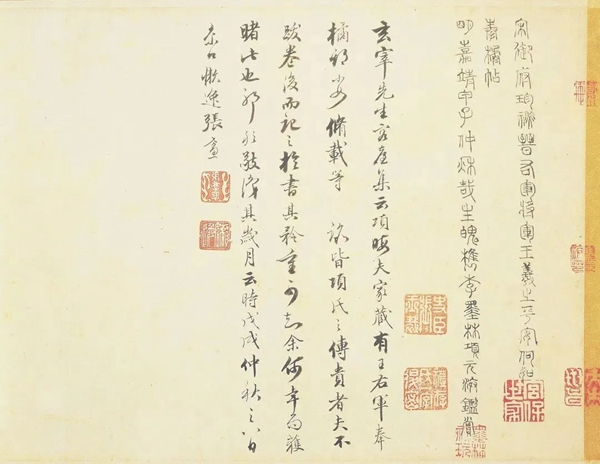 宋御府珍祕晉右軍將軍王羲之平安何如
奉橘帖
明嘉靖甲子仲秋哉生魄檇李墨林項元汴鑑賞
玄宰先生容臺集云項晦夫家藏有王右軍奉
橘 脩載等 諸皆項氏之傳貴者夫不
跋卷後而記之於書其矜重可知余何幸而獲
睹此也 敬識其歲月云時戊戌仲秋之八日
京口懶逸張